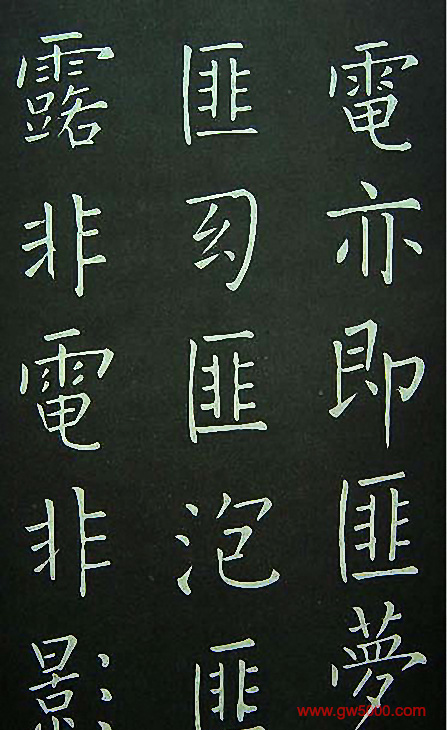 電亦即匪夢
匪幻匪泡匪
露非電非影
www.gw5000.com